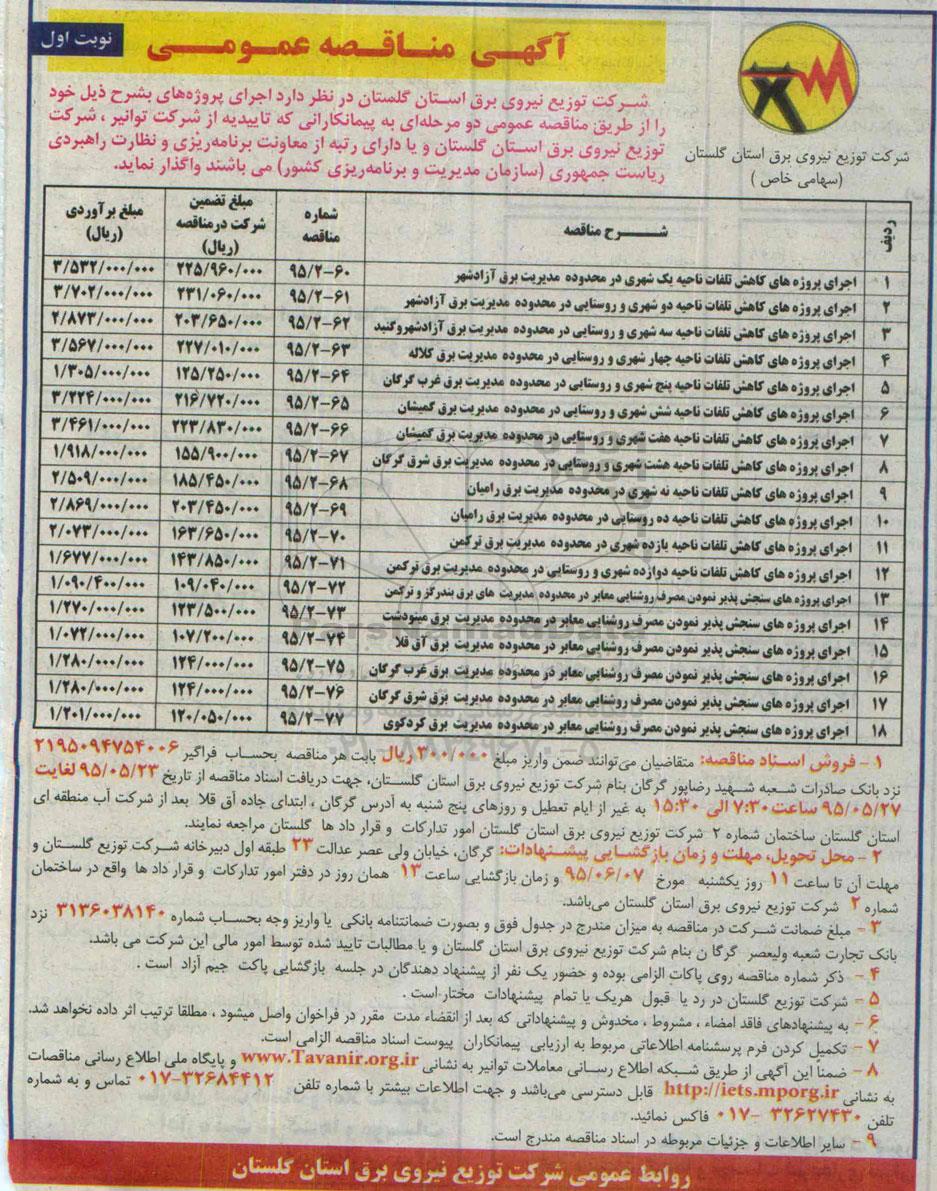 نوبت اول
آگهی مناقصه عمومی
شرکت توزیع نیروی برق استان گلستان
(سهامی خاص)
شرکت توزیع نیروی برق استان گلستان در نظر دارد اجرای پروژه‌های بشرح ذیل خود
را از طریق مناقصه عمومی دو مرحله‌ای به پیمانکارانی که تاییدیه از شرکت توانیر، شرکت
توزیع نیروی برق استان گلستان و یا دارای رتبه از معاونت برنامه‌ریزی و نظارت راهبردی
ریاست جمهوری (سازمان مدیریت و برنامه‌ریزی کشور) می باشند واگذار نماید.
ردیف شرح مناقصه شماره مناقصه مبلغ تضمین شرکت در مناقصه (ریال) مبلغ برآوردی (ریال)
۱ اجرای پروژه های کاهش تلفات ناحیه یک شهری در محدوده مدیریت برق آزادشهر ۹۵/۲-۶۰ ۲۲۵/۹۶۰/۰۰۰ ۳/۵۳۲/۰۰۰/۰۰۰
۲ اجرای پروژه های کاهش تلفات ناحیه دو شهری و روستایی در محدوده مدیریت برق آزادشهر ۹۵/۲-۶۱ ۲۳۱/۰۶۰/۰۰۰ ۳/۷۰۲/۰۰۰/۰۰۰
۳ اجرای پروژه های کاهش تلفات ناحیه سه شهری و روستایی در محدوده مدیریت برق آزادشهروگنبد ۹۵/۲-۶۲ ۲۰۳/۶۵۰/۰۰۰ ۲/۸۷۳/۰۰۰/۰۰۰
۴ اجرای پروژه های کاهش تلفات ناحیه چهار شهری و روستایی در محدوده مدیریت برق کلاله ۹۵/۲-۶۳ ۲۲۷/۰۱۰/۰۰۰ ۳/۵۶۷/۰۰۰/۰۰۰
۵ اجرای پروژه های کاهش تلفات ناحیه پنج شهری و روستایی در محدوده مدیریت برق غرب گرگان ۹۵/۲-۶۴ ۱۲۵/۲۵۰/۰۰۰ ۱/۳۰۵/۰۰۰/۰۰۰
۶ اجرای پروژه های کاهش تلفات ناحیه شش شهری و روستایی در محدوده مدیریت برق گمیشان ۹۵/۲-۶۵ ۲۱۶/۷۲۰/۰۰۰ ۳/۲۲۴/۰۰۰/۰۰۰
۷ اجرای پروژه های کاهش تلفات ناحیه هفت شهری و روستایی در محدوده مدیریت برق گمیشان ۹۵/۲-۶۶ ۲۲۳/۸۳۰/۰۰۰ ۳/۴۶۱/۰۰۰/۰۰۰
۸ اجرای پروژه های کاهش تلفات ناحیه هشت شهری و روستایی در محدوده مدیریت برق شرق گرگان ۹۵/۲-۶۷ ۱۵۵/۹۰۰/۰۰۰ ۱/۹۱۸/۰۰۰/۰۰۰
۹ اجرای پروژه های کاهش تلفات ناحیه نه شهری در محدوده مدیریت برق رامیان ۹۵/۲-۶۸ ۱۸۵/۴۵۰/۰۰۰ ۲/۵۰۹/۰۰۰/۰۰۰
۱۰ اجرای پروژه های کاهش تلفات ناحیه ده روستایی در محدوده مدیریت برق رامیان ۹۵/۲-۶۹ ۲۰۳/۴۵۰/۰۰۰ ۲/۸۶۹/۰۰۰/۰۰۰
۱۱ اجرای پروژه های کاهش تلفات ناحیه یازده شهری در محدوده مدیریت برق ترکمن ۹۵/۲-۷۰ ۱۶۳/۶۵۰/۰۰۰ ۲/۰۷۳/۰۰۰/۰۰۰
۱۲ اجرای پروژه های کاهش تلفات ناحیه دوازده شهری و روستایی در محدوده مدیریت برق ترکمن ۹۵/۲-۷۱ ۱۴۳/۸۵۰/۰۰۰ ۱/۶۷۷/۰۰۰/۰۰۰
۱۳ اجرای پروژه های سنجش پذیر نمودن مصرف روشنایی معابر در محدوده مدیریت های برق بندرگز و ترکمن ۹۵/۲-۷۲ ۱۰۹/۰۴۰/۰۰۰ ۱/۰۹۰/۴۰۰/۰۰۰
۱۴ اجرای پروژه های سنجش پذیر نمودن مصرف روشنایی معابر در محدوده مدیریت برق مینودشت ۹۵/۲-۷۳ ۱۲۳/۵۰۰/۰۰۰ ۱/۲۷۰/۰۰۰/۰۰۰
۱۵ اجرای پروژه های سنجش پذیر نمودن مصرف روشنایی معابر در محدوده مدیریت برق آق قلا ۹۵/۲-۷۴ ۱۰۷/۲۰۰/۰۰۰ ۱/۰۷۲/۰۰۰/۰۰۰
۱۶ اجرای پروژه های سنجش پذیر نمودن مصرف روشنایی معابر در محدوده مدیریت برق غرب گرگان ۹۵/۲-۷۵ ۱۲۴/۰۰۰/۰۰۰ ۱/۲۸۰/۰۰۰/۰۰۰
۱۷ اجرای پروژه های سنجش پذیر نمودن مصرف روشنایی معابر در محدوده مدیریت برق شرق گرگان ۹۵/۲-۷۶ ۱۲۴/۰۰۰/۰۰۰ ۱/۲۸۰/۰۰۰/۰۰۰
۱۸ اجرای پروژه های سنجش پذیر نمودن مصرف روشنایی معابر در محدوده مدیریت برق کردکوی ۹۵/۲-۷۷ ۱۲۰/۰۵۰/۰۰۰ ۱/۲۰۱/۰۰۰/۰۰۰
۱ - فروش اسناد مناقصه: متقاضیان می‌توانند ضمن واریز مبلغ ۳۰۰/۰۰۰ ریال بابت هر مناقصه بحساب فراگیر ۲۱۹۵۰۹۴۷۵۴۰۰۶
نزد بانک صادرات شعبه شهید رضاپور گرگان بنام شرکت توزیع نیروی برق استان گلستان، جهت دریافت اسناد مناقصه از تاریخ ۹۵/۰۵/۲۳ لغایت
۹۵/۰۵/۲۷ ساعت ۷:۳۰ الی ۱۵:۳۰ به غیر از ایام تعطیل و روزهای پنج شنبه به آدرس گرگان ، ابتدای جاده آق قلا بعد از شرکت آب منطقه ای
استان گلستان ساختمان شماره ۲ شرکت توزیع نیروی برق استان گلستان امور تدارکات و قرار داد ها گلستان مراجعه نمایند.
۲ - محل تحویل، مهلت و زمان بازگشایی پیشنهادات: گرگان، خیابان ولی عصر عدالت ۲۳ طبقه اول دبیرخانه شرکت توزیع گلستان و
مهلت آن تا ساعت ۱۱ روز یکشنبه مورخ ۹۵/۰۶/۰۷ و زمان بازگشایی ساعت ۱۳ همان روز در دفتر امور تدارکات و قرار داد ها واقع در ساختمان
شماره ۲ شرکت توزیع نیروی برق استان گلستان می‌باشد.
۳ - مبلغ ضمانت شرکت در مناقصه به میزان مندرج در جدول فوق و بصورت ضمانتنامه بانکی یا واریز وجه بحساب شماره ۳۱۳۶۰۳۸۱۴۰ نزد
بانک تجارت شعبه ولیعصر گرگان بنام شرکت توزیع نیروی برق استان گلستان و یا مطالبات تایید شده توسط امور مالی این شرکت می باشد.
۴ - ذکر شماره مناقصه روی پاکات الزامی بوده و حضور یک نفر از پیشنهاد دهندگان در جلسه بازگشایی پاکت جیم آزاد است .
۵ - شرکت توزیع گلستان در رد یا قبول هریک یا تمام پیشنهادات مختار است .
۶ - به پیشنهادهای فاقد امضاء ، مشروط ، مخدوش و پیشنهاداتی که بعد از انقضاء مدت مقرر در فراخوان واصل میشود ، مطلقا ترتیب اثر داده نخواهد شد.
۷ - تکمیل کردن فرم پرسشنامه اطلاعاتی مربوط به ارزیابی پیمانکاران پیوست اسناد مناقصه الزامی است.
۸ - ضمنا این آگهی از طریق شبکه اطلاع رسانی معاملات توانیر به نشانی www.Tavanir.org.ir و پایگاه ملی اطلاع رسانی مناقصات
به نشانی http://iets.mporg.ir قابل دسترسی می‌باشد و جهت اطلاعات بیشتر با شماره تلفن ۳۲۶۸۴۴۱۲-۰۱۷ تماس و به شماره
تلفن ۳۲۶۲۷۴۳۰ -۰۱۷ فاکس نمائید.
۹ - سایر اطلاعات و جزئیات مربوطه در اسناد مناقصه مندرج است.
روابط عمومی شرکت توزیع نیروی برق استان گلستان